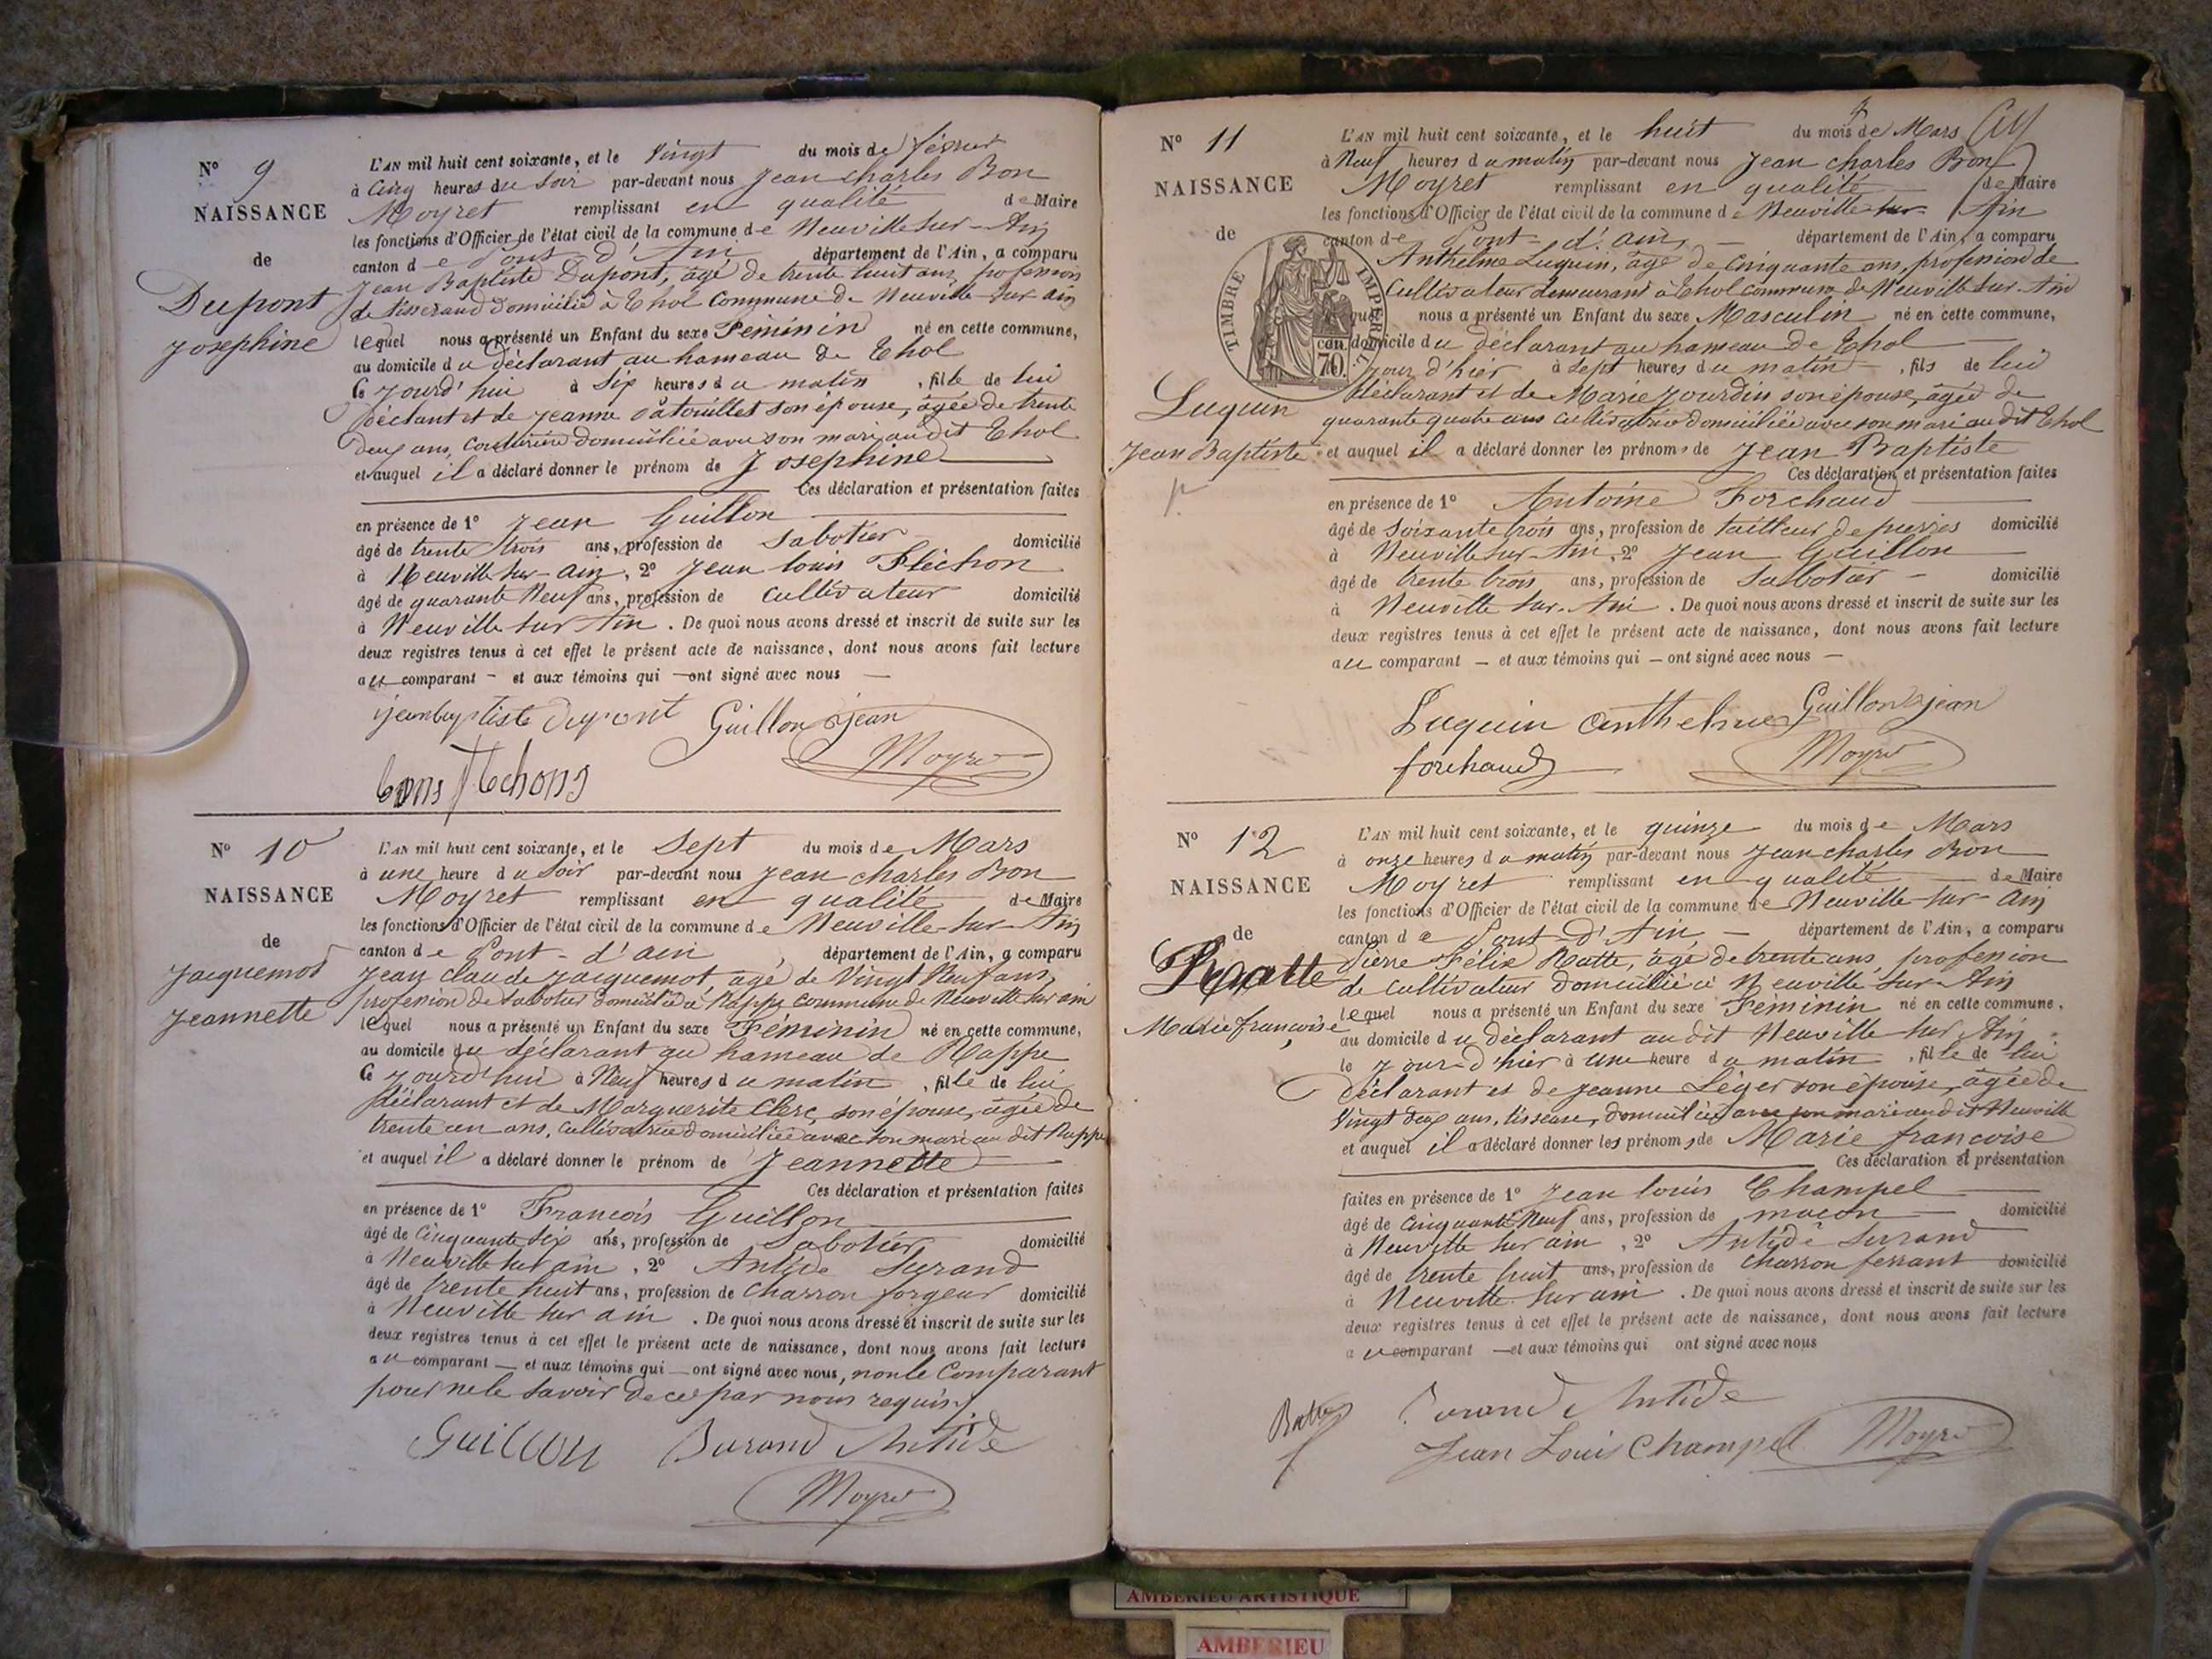 N° 9
NAISSANCE
de
Dupont
Josephine
L'AN mil huit cent soixante, et le Vingt du mois de février
à Cinq heures du Soir par-devant nous Jean charles Bon
Moyret remplissant en qualité de Maire
les fonctions d'Officier de l'état civil de la commune de Neuville sur-Ain
canton de Pont-d'Ain département de l'Ain, a comparu
Jean Baptiste Dupont, âgé de trente huit ans, profession
de tisserand domicilié à Thol Commune de Neuville sur ain
lequel nous a présenté un Enfant du sexe Féminin né en cette commune,
au domicile du déclarant au hameau de Thol
Ce jourd'hui à Six heures du matin, fille de lui
déclant et de Jeanne Patouillet son épouse, âgée de trente
deux ans, couturière domiciliée avec son mari audit Thol
et auquel il a déclaré donner le prénom de Josephine
Ces déclaration et présentation faites
en présence de 1° Jean Guillon
âgé de trente trois ans, profession de Sabotier domicilié
à Neuville sur-ain, 2° Jean louis Fléchon
âgé de quarante Neuf ans, profession de cultivateur domicilié
à Neuville sur Ain. De quoi nous avons dressé et inscrit de suite sur les
deux registres tenus à cet effet le présent acte de naissance, dont nous avons fait lecture
au comparant - et aux témoins qui - ont signé avec nous -
jeanbaptiste dupont Guillon jean
Moyret
N° 10
NAISSANCE
de
Jacquemot
Jeannette
L'AN mil huit cent soixante, et le Sept du mois de Mars
à une heure du Soir par-devant nous Jean charles Bon
Moyret remplissant en qualité de Maire
les fonctions d'Officier de l'état civil de la commune de Neuville-sur-Ain
canton de Pont-d'ain, département de l'Ain, a comparu
Jean Claude Jacquemot, âgé de Vingt Neuf ans,
profession de Sabotier domicilié à Rappe commune de Neuville sur ain
lequel nous a présenté un Enfant du sexe Féminin né en cette commune,
au domicile du déclarant au hameau de Rappe
Ce jourd'hui à Neuf heures du matin, fille de lui
déclarant et de Marguerite Clerc, son épouse, âgée de
trente un ans, cultivatrice domiciliée avec son mari au dit Rappe
et auquel il a déclaré donner le prénom de Jeannette
Ces déclaration et présentation faites
en présence de 1° François Guillon
âgé de Cinquante Six ans, profession de Sabotier domicilié
à Neuville sur ain, 2° Antide
âgé de trente huit ans, profession de Charron forgeur domicilié
à Neuville sur ain. De quoi nous avons dressé et inscrit de suite sur les
deux registres tenus à cet effet le présent acte de naissance, dont nous avons fait lecture
au comparant - et aux témoins qui - ont signé avec nous, non le Comparant
pour ne le savoir de ce par nous requis
Guillon Durand Antide
Moyret
N° 11
NAISSANCE
de
TIMBRE IMPERIAL
70
Luquin
Jean Baptiste
L'AN mil huit cent soixante, et le huit du mois de Mars
à Neuf heures du matin par-devant nous Jean charles Bon
Moyret remplissant en qualité de Maire
les fonctions d'Officier de l'état civil de la commune de Neuville sur-Ain
canton de Pont-d'ain département de l'Ain, a comparu
Anthelme Luquin, âgé de Cinquante ans, profession de
Cultivateur demeurant à Thol commune de Neuville sur Ain
lequel nous a présenté un Enfant du sexe Masculin né en cette commune,
au domicile du déclarant au hameau de Thol
jour d'hier à Sept heures du matin, fils de lui
déclarant et de Marie Jourdin son épouse, âgée de
quarante quatre ans cultivatrice domiciliée avec son mari au dit Thol
et auquel il a déclaré donner les prénoms de Jean Baptiste
Ces déclaration et présentation faites
en présence de 1° Antoine Forchaud
âgé de Soixante trois ans, profession de tailleur de pierres domicilié
à Neuville sur-Ain, 2° Jean Guillon
âgé de trente trois ans, profession de Sabotier domicilié
à Neuville sur-Ain. De quoi nous avons dressé et inscrit de suite sur les
deux registres tenus à cet effet le présent acte de naissance, dont nous avons fait lecture
au comparant - et aux témoins qui - ont signé avec nous -
Luquin anthelme Guillon jean
forchaud Moyret
N° 12
NAISSANCE
de
Ratte
Marie françoise
L'AN mil huit cent soixante, et le quinze du mois de Mars
à onze heures du matin par-devant nous Jean charles Bon
Moyret remplissant en qualité de Maire
les fonctions d'Officier de l'état civil de la commune de Neuville-sur-Ain
canton de Pont-D'Ain département de l'Ain, a comparu
Pierre Félix Ratte, âgé de trente ans, profession
de cultivateur domicilié à Neuville sur-Ain
lequel nous a présenté un Enfant du sexe Féminin né en cette commune,
au domicile du déclarant au dit Neuville sur Ain
le jour d'hier à Une heure du matin, fille de lui
déclarant et de Jeanne Léger son épouse, âgée de
Vingt deux ans, tisseuse, domiciliée avec son mari au dit Neuville
et auquel il a déclaré donner les prénoms de Marie françoise
Ces déclaration et présentation
faites en présence de 1° Jean louis Champel
âgé de Cinquante Neuf ans, profession de macon domicilié
à Neuville sur ain, 2° Antide
âgé de trente huit ans, profession de charron ferrant domicilié
à Neuville sur ain. De quoi nous avons dressé et inscrit de suite sur les
deux registres tenus à cet effet le présent acte de naissance, dont nous avons fait lecture
au comparant - et aux témoins qui ont signé avec nous
Ratte Durand Antide
Jean Louis Champel Moyret
AMBERIEU ARTISTIQUE
AMBERIEU